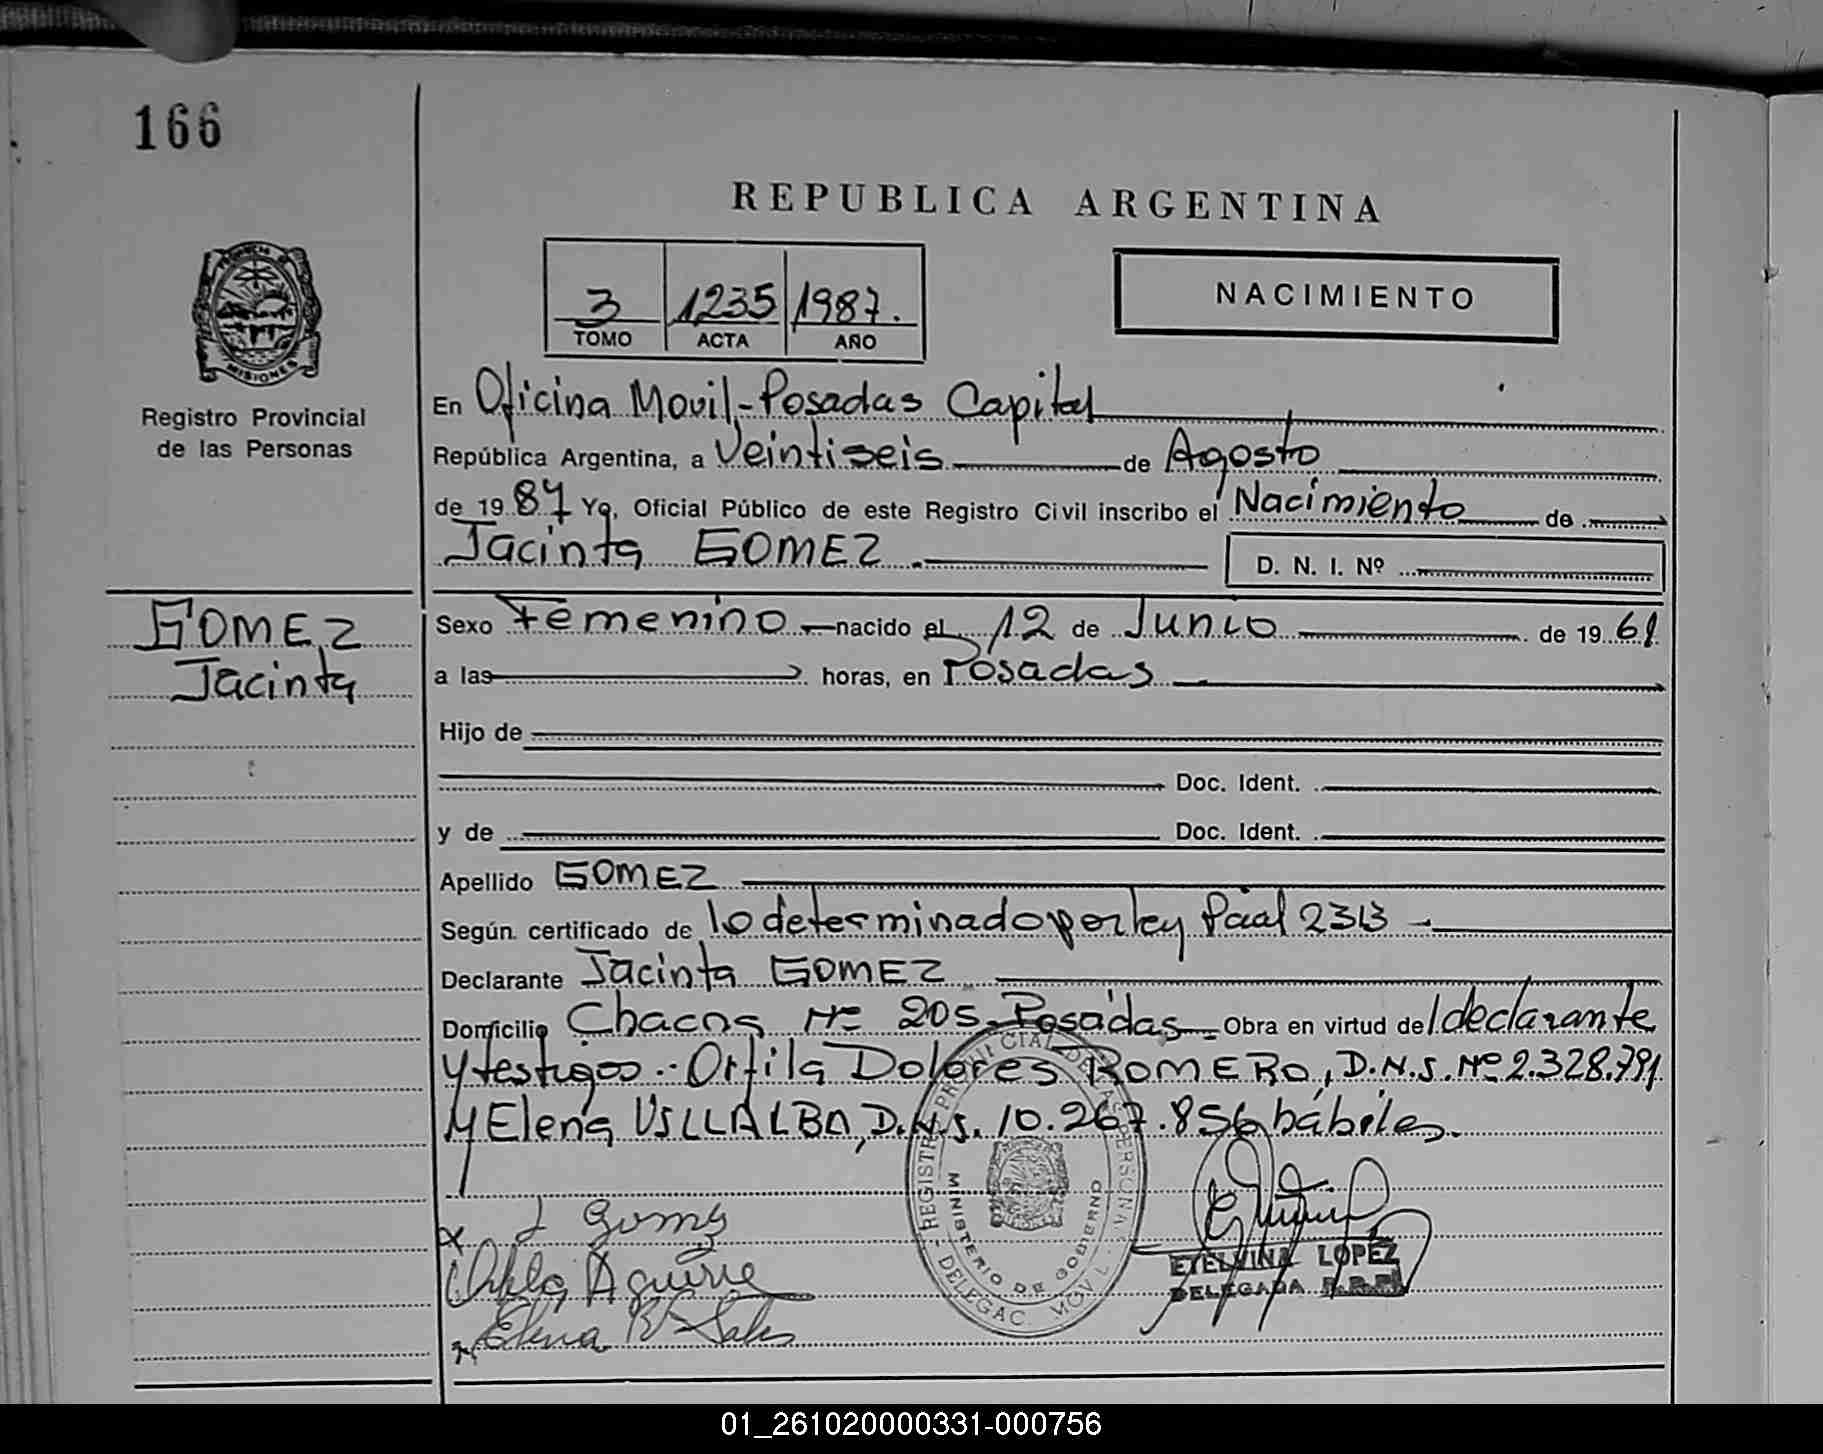 166
REPUBLICA ARGENTINA
PROVINCIA DE
MISIONES
Registro Provincial
de las Personas
3 1235 1987.
TOMO ACTA AÑO
NACIMIENTO
En Oficina Movil-Posadas Capital
República Argentina, a Veintiseis de Agosto
de 1987 Yo, Oficial Público de este Registro Civil inscribo el Nacimiento de
Jacinta GOMEZ. D. N. I. Nº
GOMEZ
Jacinta
Sexo Femenino nacido el 12 de Junio de 1961
a las horas, en Posadas
Hijo de
Doc. Ident.
y de Doc. Ident.
Apellido GOMEZ
Según certificado de lo determinado por ley Pcial 2313
Declarante Jacinta GOMEZ
Domicilio Chacos Nº 205-Posadas- Obra en virtud del declarante
y testigos.- Orfila Dolores ROMERO, D.N.I. Nº 2.328.791
y Elena VILLALBA, D.N.I. 10.267.856 hábiles.
REGISTRO PROVINCIAL DE LAS PERSONAS
MINISTERIO DE GOBIERNO
DELEGAC. MOVIL
x J Gomez
Orfila Aguirre
x Elena
ETELVINA LOPEZ
DELEGADA
01_261020000331-000756